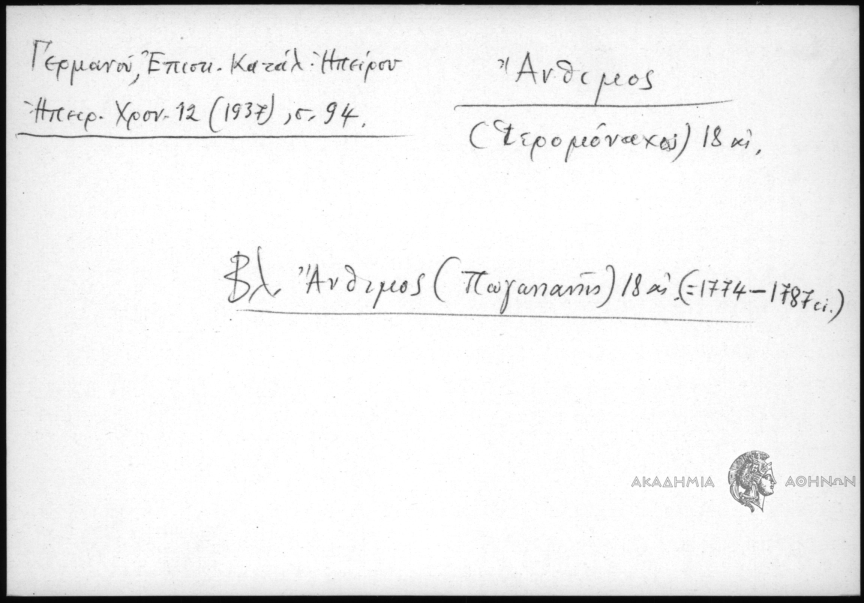 Γερμανού, Ἐπισκ. Κατάλ. Ἠπείρου
Ἠπειρ. Χρον. 12 (1937), σ. 94.
Ἄνθιμος
(Ἱερομόναχος) 18 αἰ.
Βλ. Ἄνθιμος (Πωγωνιανῆς) 18 αἰ. (=1774-1787 εἰ.)
ΑΚΑΔΗΜΙΑ ΑΘΗΝΩΝ